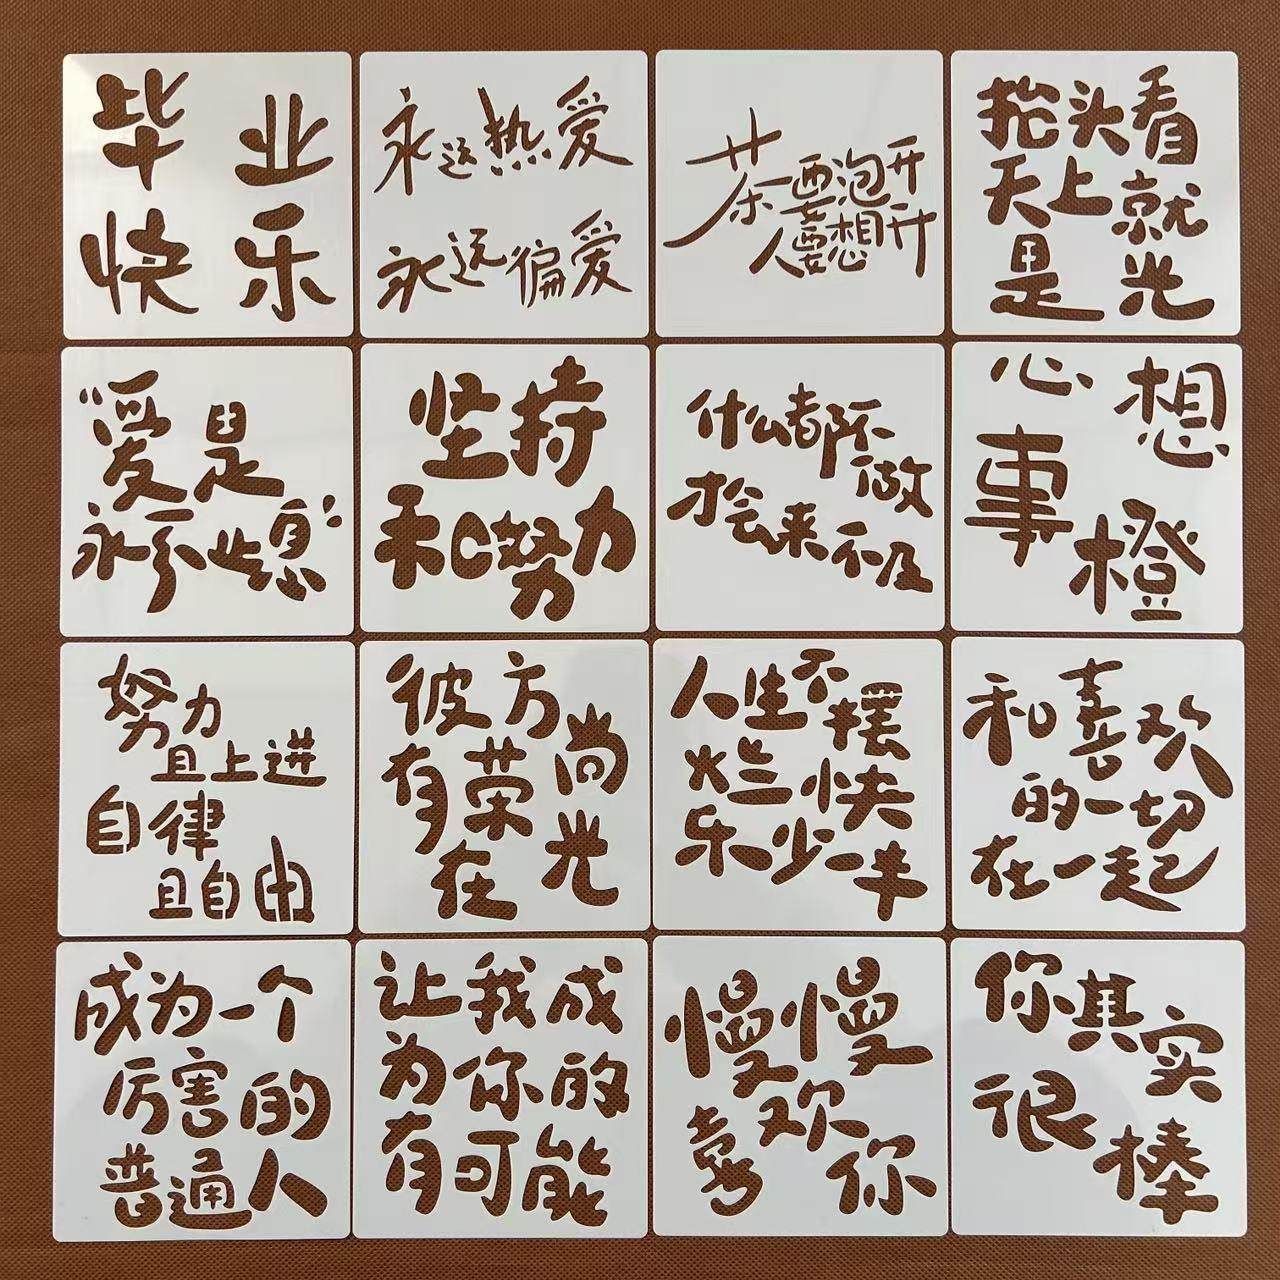 毕业
快乐
永远热爱
永远偏爱
茶要泡开
人要想开
抬头看
天上就
是光
“爱是
永不止息”
坚持
和努力
什么都不做
才会来不及
心想
事橙
努力
且上进
自律
且自由
彼方尚
有荣光
在
人生不摆
烂快
乐少一半
和喜欢
的一切
在一起
成为一个
厉害的
普通人
让我成
为你的
有可能
慢慢
喜欢你
你其实
很棒